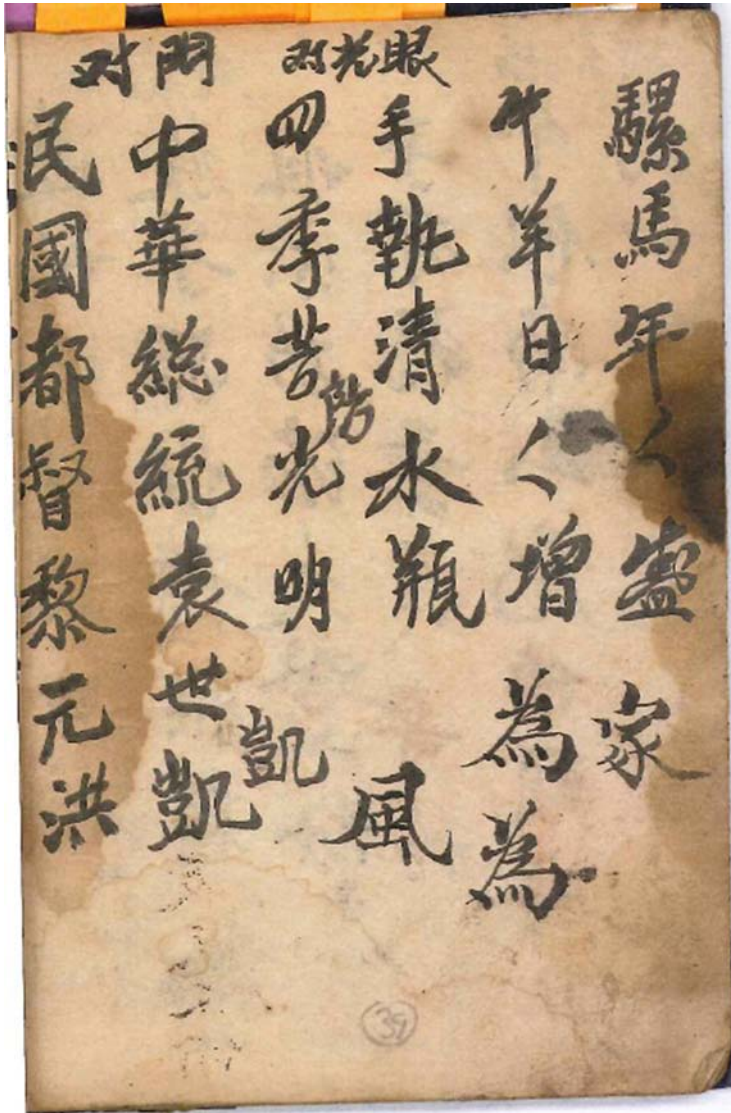 騾馬年〱 家
牛羊日〱增 為為
眼光对
手執清水瓶 風
四季 光明 凱
門对
中華総統袁世凱
民國都督黎元洪
39